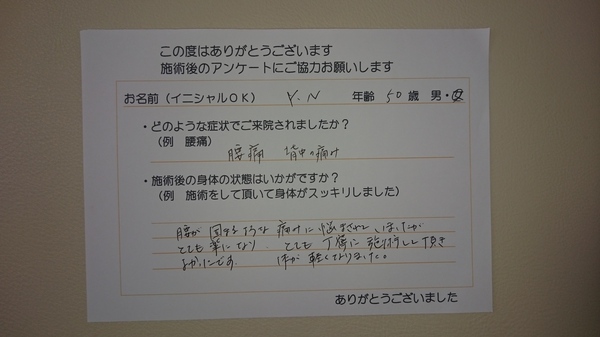 この度はありがとうございます
施術後のアンケートにご協力お願いします
お名前（イニシャルOK） Y.N 年齢 50歳 男・女
・どのような症状でご来院されましたか？
（例 腰痛）
腰痛 背中の痛み
・施術後の身体の状態はいかがですか？
（例 施術をして頂いて身体がスッキリしました）
腰が固まるような痛みに悩まされていましたが
とても楽になり、とても丁寧に施術して頂き
よかったです。 体が軽くなりました。
ありがとうございました